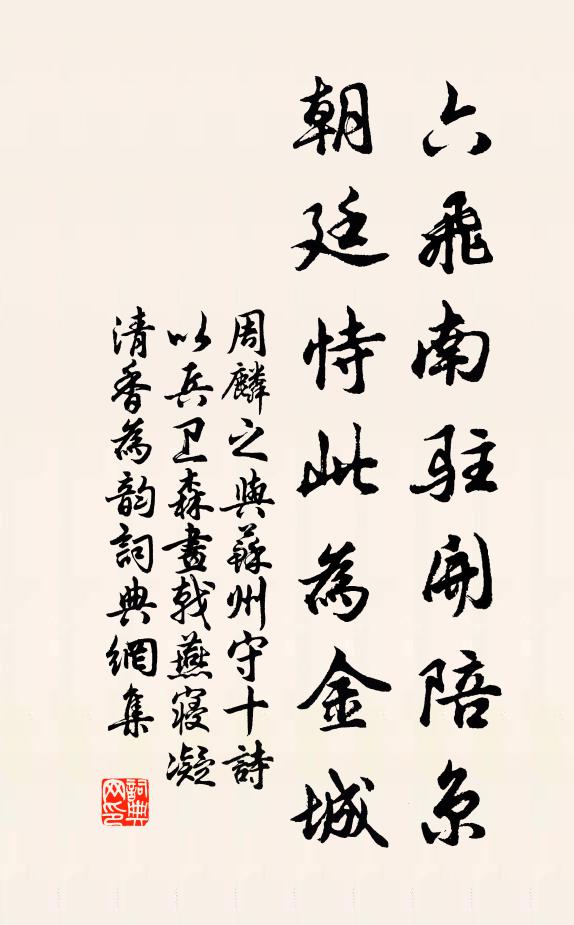 六飛南駐開陪京
朝廷恃此為金城
周麟之與蘇州守十詩
以兵卫森畫戟燕寢凝
清香為韵詞典網集
詞典网印